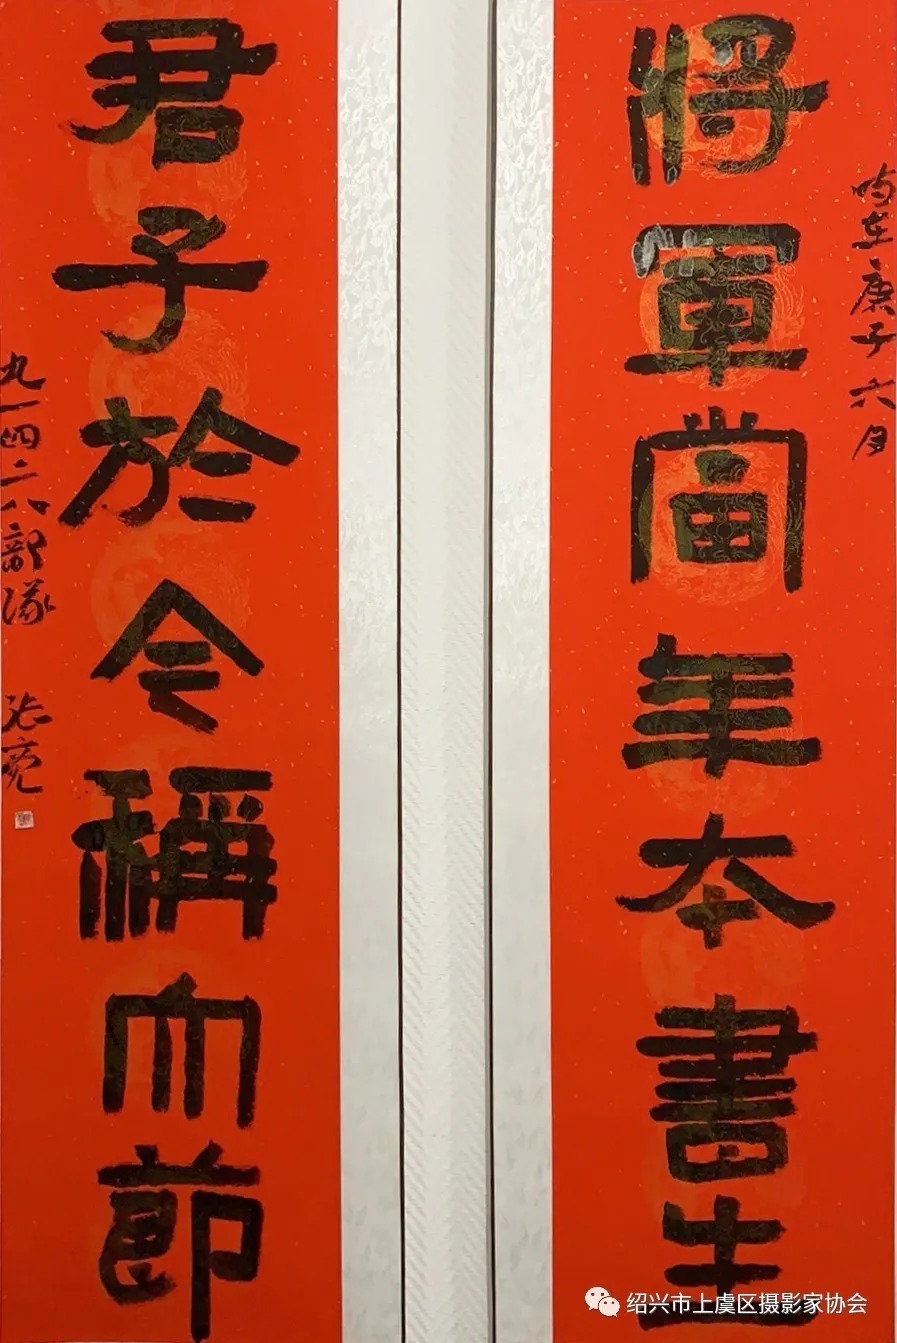 时在庚子六月
將軍當年本書生
君子於今稱大節
九一四二八部隊 张亮
绍兴市上虞区摄影家协会